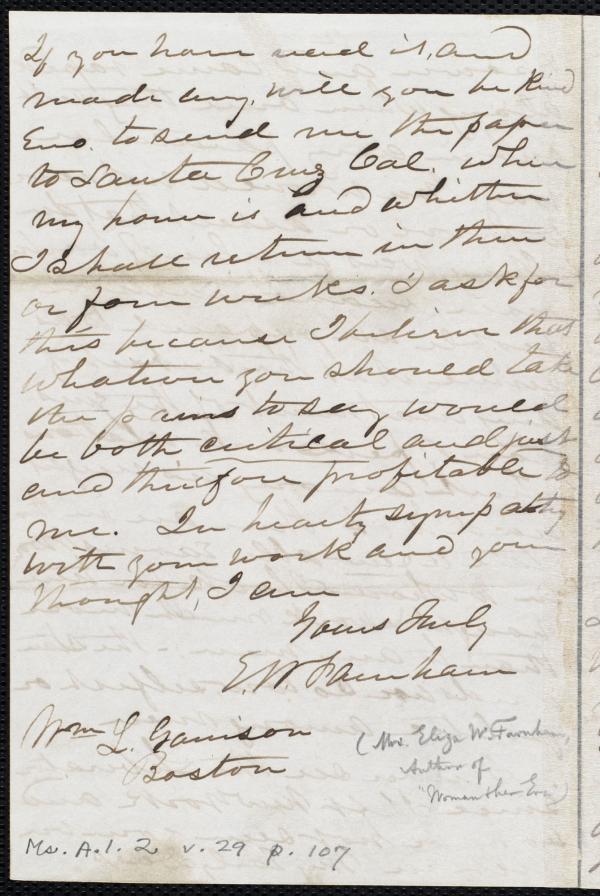 If you have read it, and
made any, will you be kind
Eno. to send me the paper
to Santa Cruz Cal. where
my home is and whither
I shall return in three
or four weeks. I ask for
this because I believe that
whatever you should take
the pains to say would
be both critical and just
and therefore profitable to
me. In hearty sympathy
with your work and your
thought, I am
Yours truly
E. W. Farnham
Wm L. Garrison
Boston
(Mrs. Eliza W. Farnham,
Author of
"Woman & her Era")
Ms. A. 1. 2 v. 29 p. 107